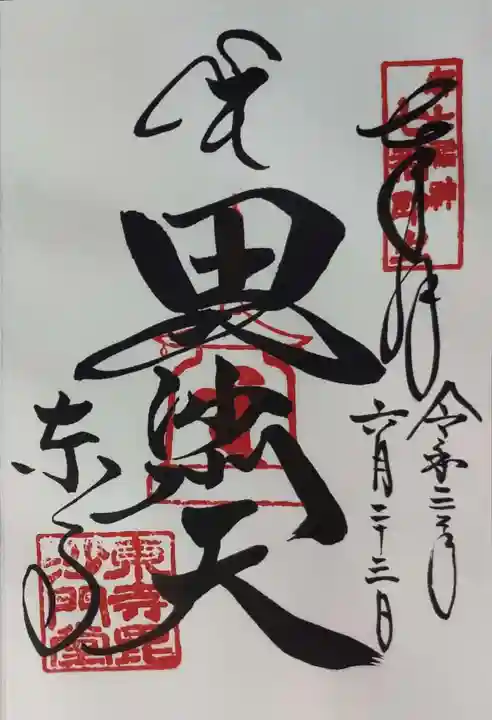 奉拝
令和二年
六月二十三日
毘沙門天
東寺
東寺毘
沙門堂